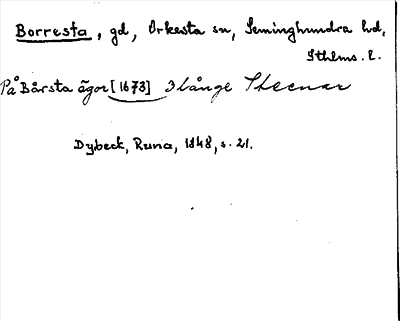 Borresta, gd, Orkesta sn, Seminghundra hd,
Sthlms. l.
På Bårsta ägor [1673] 3 långe Steenar
Dybeck, Runa, 1848, s. 21.